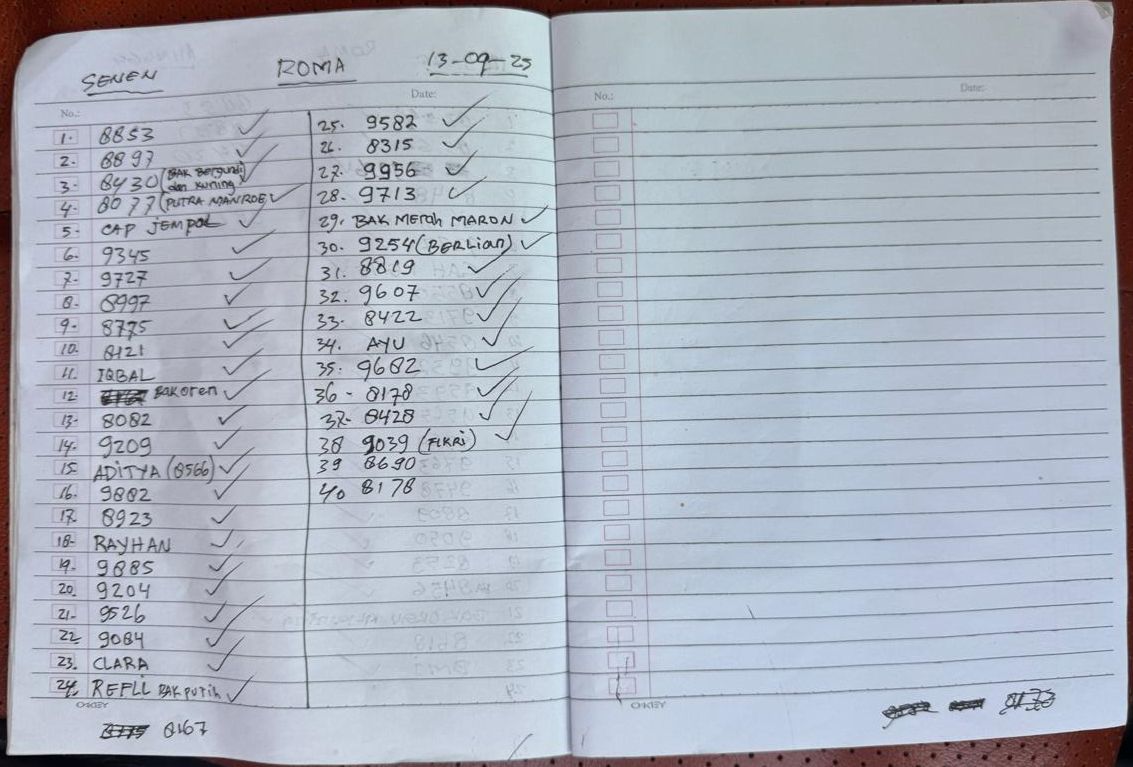 SENEN ROMA 13-09-25
No.: Date:
1. 8853 ✓
2. 8897 ✓
3. 8430 (BAK Bergundi dan Kuning) ✓
4. 8077 (PUTRA MANROE ✓
5. CAP JEMPOL ✓
6. 9345 ✓
7. 9727 ✓
8. 8997 ✓
9. 8775 ✓
10. 8121 ✓
11. IQBAL ✓
12. BAK oren ✓
13. 8082 ✓
14. 9209 ✓
15. ADITYA (8566) ✓
16. 9882 ✓
17. 8923 ✓
18. RAYHAN ✓
19. 9885 ✓
20. 9204 ✓
21. 9526 ✓
22 9084 ✓
23. CLARA ✓
24. REFLI BAK putih ✓
OKEY
8167
25. 9582 ✓
26. 8315 ✓
27. 9956 ✓
28. 9713 ✓
29. BAK Merah MARON ✓
30. 9254 (BERLian) ✓
31. 8819 ✓
32. 9607 ✓
33. 8422 ✓
34. AYU ✓
35. 9682 ✓
36 - 8178 ✓
37. 8428 ✓
38 9039 (FIKRi) ✓
39 8690
40 8178
No.: Date:
OKEY